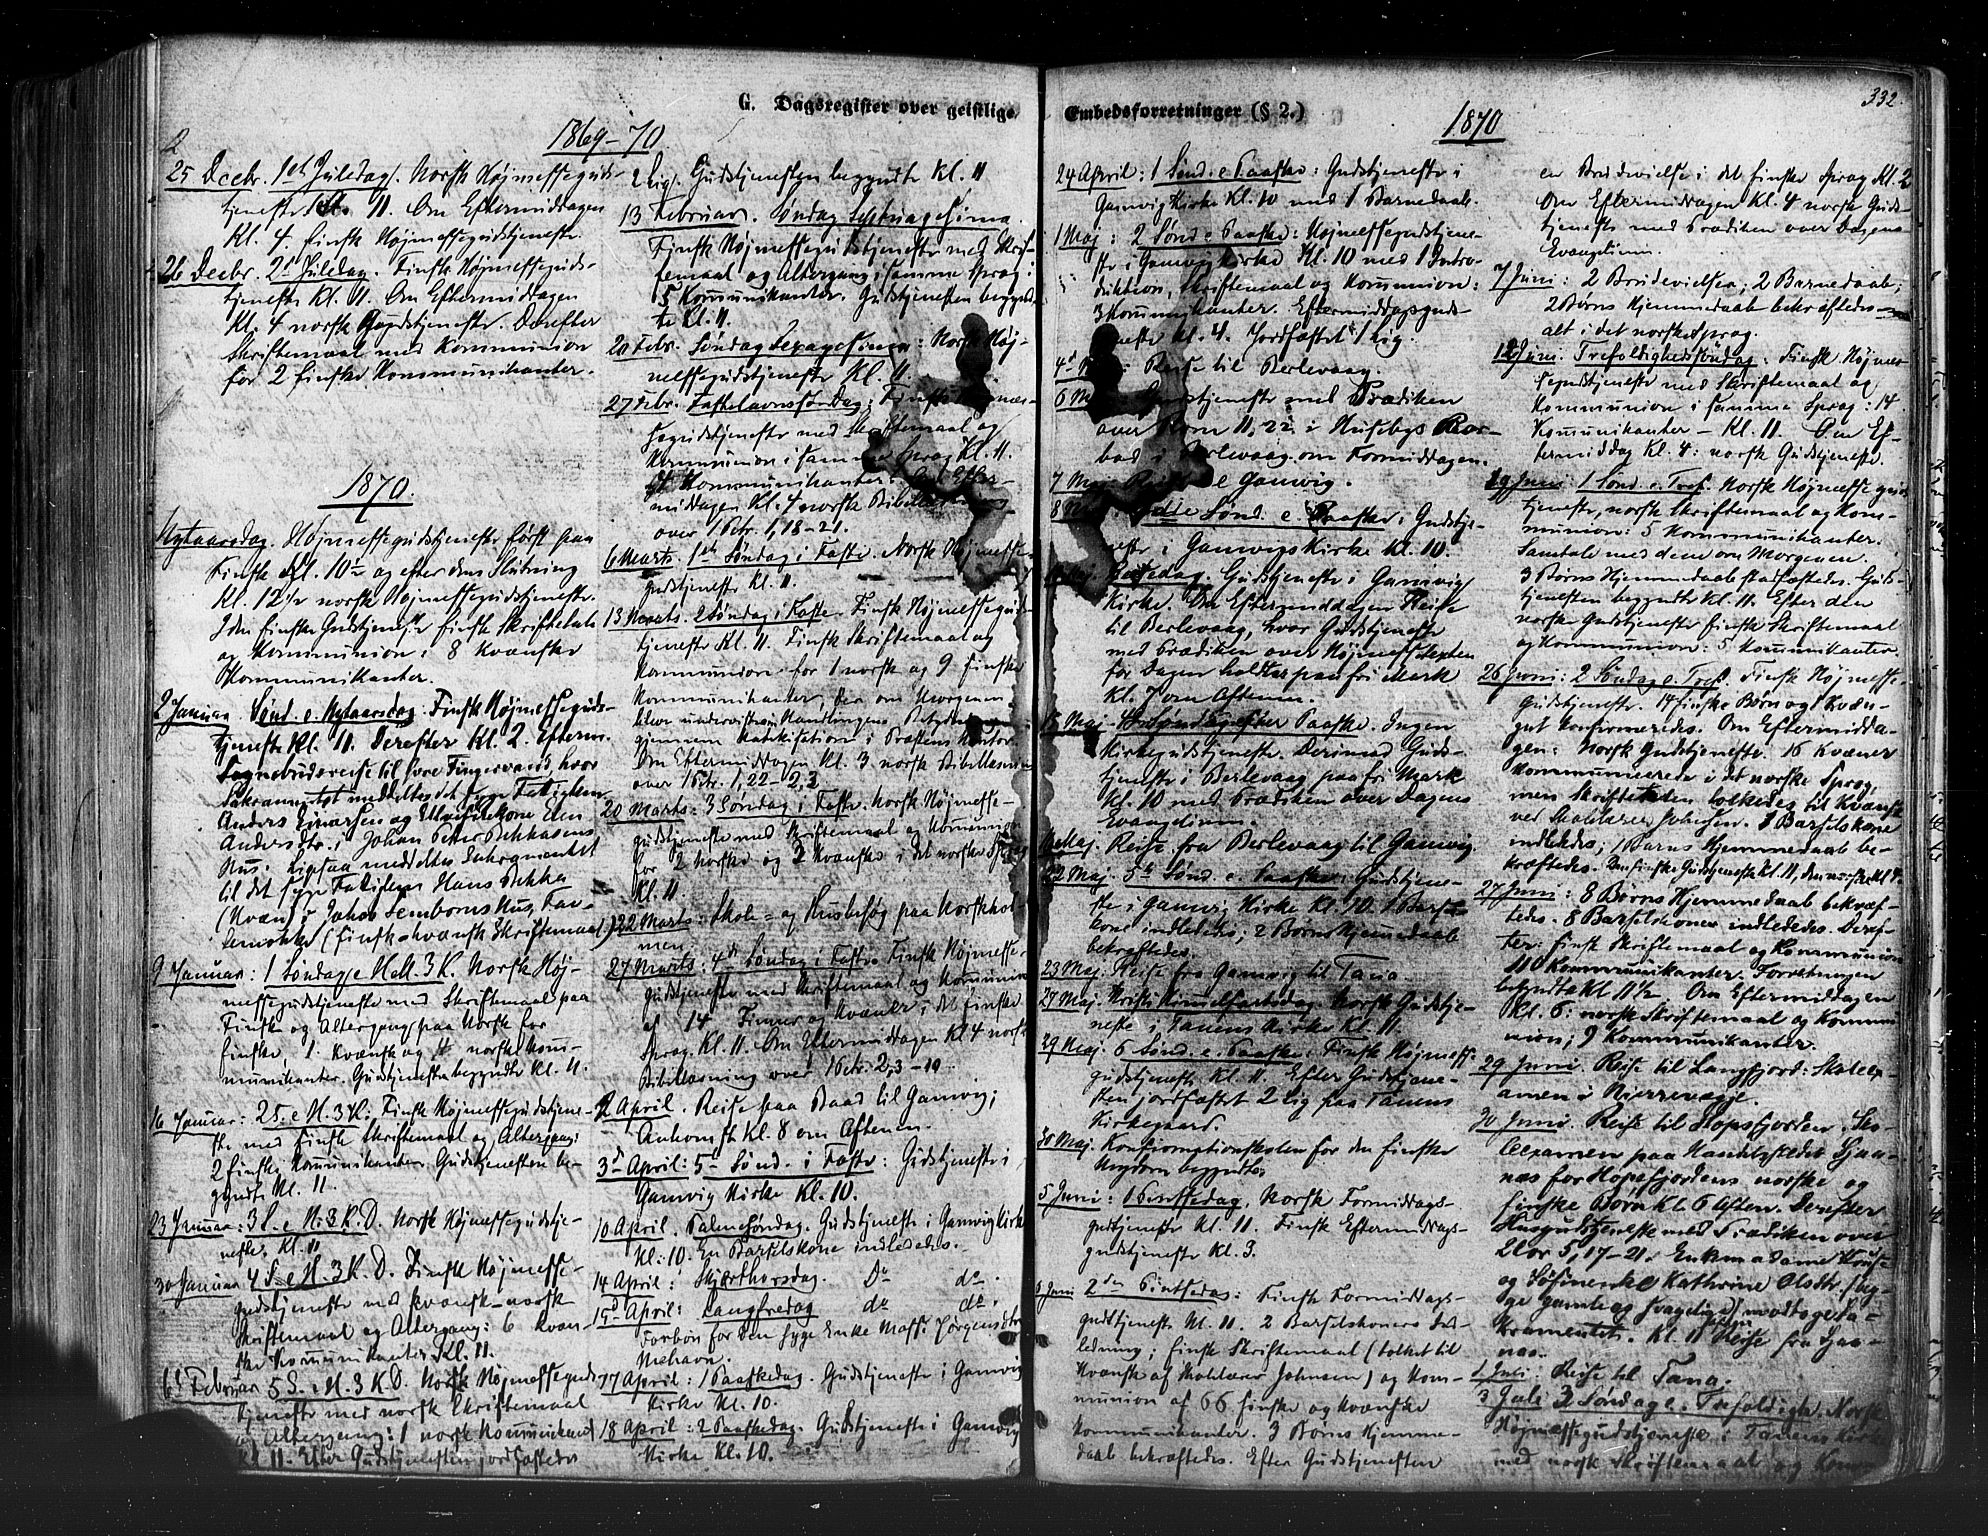 G. Dagsregister over geistlige
Embedsforretninger (§ 2.)
332.
2
1869-70
25 Decbr. 1ste Juledag. Norsk Højmesseguds-
tjeneste Kl. 11. Om Eftermiddagen
Kl. 4. finsk Højmessegudstjeneste.
26 Decbr. 2d Juledag. Finsk Højmesseguds-
tjeneste Kl. 11. Om Eftermiddagen
Kl. 4 norsk Gudstjeneste. Derefter
Skriftemaal med Kommunion
for 2 finske Kommunikanter.
1870.
Nytaarsdag. Højmessegudstjeneste først paa
Finsk Kl. 10½ og efter dens Slutning
Kl. 12½ norsk Højmessegudstjeneste.
I den finske Gudstjeneste finsk Skriftetale
og Kommunion: 8 Kvænske
Kommunikanter.
2 Januar Sønd. e. Nytaarsdag. Finsk Højmesseguds-
tjeneste Kl. 11. Derefter Kl. 2. Efterm.
Sognebudsreise til hvor
Sakramentet meddeltes det syge
Anders Einarsen og Ellen
Andersdtr. i Johan Petter Pekkasens
Hus; Ligesaa meddeltes Sakramentet
til det syge Hans Pekka
(Kvæn) i Johan Hus,
(finsk-kvænsk Skriftemaal)
9 Januar: 1 Søndag e H. 3 K. Norsk Høj-
messegudstjeneste med Skriftemaal paa
Finsk og Altergang paa Norsk for
finske, 1 Kvænsk og norske Kom-
munikanter. Gudstjenesten begyndte Kl. 11.
16 Januar: 2 S. e H. 3 K. Finsk Højmessegudstjene-
ste med finsk Skriftemaal og Altergang:
2 finske Kommunikanter. Gudstjenesten be-
gyndte Kl. 11.
23 Januar: 3 S. e H. 3 K. D. Norsk Højmessegudstje-
neste. Kl. 11
30 Januar 4 S. e H. 3 K. D. Finsk Højmesse-
gudstjeneste med kvænsk-norsk
Skriftemaal og Altergang: 6 Kvæn-
ske Kommunikanter. Kl. 11.
6te Februar 5 S. e H. 3 K. D. Norsk Højmesseguds
tjeneste med norsk Skriftemaal
og Altergang: 1 norsk Kommunikant
Kl. 11. Efter Gudstjenesten jordfæstedes
2 Lig. Gudstjenesten begyndte Kl. 11
13 Februar. Søndag Septuagesima.
Finsk Højmessegudstjeneste med Skrif-
temaal og Altergang i samme Sprog:
5 Kommunikanter. Gudstjenesten begynd-
te Kl. 11.
20 Febr. Søndag Sexagesima: Norsk Høj-
messegudstjeneste Kl. 11.
27 Febr. Fastelavnssøndag: Finsk Højmes-
segudstjeneste med Skriftemaal og
Kommunion i samme Sprog Kl. 11.
Kommunikanter. Om Efter-
middagen Kl. 4 norsk Bibellæsning
over 1 Petr. 1, 18-21.
6 Marts. 1ste Søndag i Faste. Norsk Højmesse-
gudstjeneste Kl. 11.
13 Marts. 2 Søndag i Faste. Finsk Højmessegud-
tjeneste Kl. 11. Finsk Skriftemaal og
Kommunion for 1 norsk og 9 finske
Kommunikanter, der om Morgenen
blev underviste om Handlingens Betydning
gjennem Katekisation i Præstens Kontor.
Om Eftermiddagen Kl. 3 norsk Bibellæsning
over 1 Petr. 1, 22-2, 3
20 Marts: 3 Søndag i Faste. Norsk Højmesse-
gudstjeneste med Skriftemaal og Kommunion
for 2 Norske og 2 Kvænske i det norske Sprog
Kl. 11
22 Marts: Skole- og Husbesøg paa Norskhol-
men.
27 Marts: 4de Søndag i Faste. Finsk Højmesse-
gudstjeneste med Skriftemaal og Kommunion
af 14 Finner og Kvæner i det finske
Sprog. Kl. 11. Om Eftermiddagen Kl. 4 norsk
Bibellæsning over 1 Petr. 2, 3-10.
2 April. Reise paa Baad til Gamvig;
Ankomst Kl. 8 om Aftenen.
3d April: 5te Sønd. i Faste: Gudstjeneste i
Gamvig Kirke Kl. 10.
10 April. Palmesøndag. Gudstjeneste i Gamvig Kirke
Kl. 10. En Barselskone indledes.
14 April: Skjærthorsdag. do do.
15d April: Langfredag do do.
Forbøn for den syge Enke Jørgensdtr
Mehavn.
17 April: 1 Paaskedag. Gudstjeneste i Gamvig
Kirke Kl. 10.
18 April: 2 Paaskedag. Gudstjeneste i Gamvig
Kirke Kl. 10.
1870
24 April: 1 Sønd. e Paaske: Gudstjeneste i
Gamvig Kirke Kl. 10 med 1 Barnedaab.
1 Maj: 2 Sønd. e Paaske: Højmessegudstjene-
ste i Gamvig Kirke Kl. 10 med 1 Intro-
duktion, Skriftemaal og Kommunion:
3 Kommunikanter. Eftermiddagsguds-
tjeneste Kl. 4. Jordfæstet 1 Lig.
4d Reise til Berlevaag.
6 M Gudstjeneste med Prædiken
over Rom 11, 22 i Husebys Ror-
bod i Berlevaag om Formiddagen.
7 Maj Reise Gamvig.
8 Sønd. e. Paaske: Gudstje-
neste i Gamvigs Kirke Kl. 10.
Bededag. Gudstjeneste i Gamvig
Kirke. Om Eftermiddagen Reise
til Berlevaag, hvor Gudstjeneste
med Prædiken over Højmesseteksten
for Dagen holdtes paa fri Mark
Kl. 7 om Aftenen.
15 Maj 4 Søndag efter Paaske. Ingen
Kirkegudstjeneste. Derimod Guds-
tjeneste i Berlevaag paa fri Mark
Kl. 10 med Prædiken over Dagens
Evangelium.
Maj. Reise fra Berlevaag til Gamvig
22 Maj 5te Sønd. e. Paaske: Gudstjene-
ste i Gamvig Kirke Kl. 10. 1 Barsel-
kone indledes; 2 Børns Hjemmedaab
bekræftedes.
23 Maj. Reise fra Gamvig til Tana
Maj. Kristi Himmelfartsdag. Norsk Gudstje-
neste i Tanens Kirke Kl. 11.
29 Maj. 6 Sønd. e. Paaske: Finsk Højmesse-
gudstjeneste Kl. 11. Efter Gudstjene-
sten jordfæstet 2 Lig paa Tanens
Kirkegaard.
30 Maj. Konfirmationsskolen for den finske
Ungdom begyndte.
5 Juni: 1 Pinsedag. Norsk Formiddags-
gudstjeneste Kl. 11. Finsk Eftermiddags-
gudstjeneste Kl. 3.
6 Juni 2den Pintsedag: Finsk Formiddags-
gudstjeneste Kl. 11. 2 Barselkoners Ind-
ledning; finsk Skriftemaal (tolket til
Kvænsk af Skolelærer Johnsen) og Kom-
munion af 66 finske og kvænske
Kommunikanter. 3 Børns Hjemme-
daab bekræftedes. Efter Gudstjenesten
en Brudevielse i det finske Sprog Kl. 2
Om Eftermiddagen Kl. 4 norsk Guds-
tjeneste med Prædiken over Dagens
Evangelium.
7 Juni: 2 Brudevielser; 2 Barnedaab;
2 Børns Hjemmedaab bekræftedes
alt i det norske Sprog.
12 Juni. Trefoldighedssøndag: Finsk Højmes-
segudstjeneste med Skriftemaal og
Kommunion i samme Sprog: 14
Kommunikanter - Kl. 11. Om Ef-
termiddag Kl. 4: norsk Gudstjeneste.
19 Juni 1 Sønd. e. Tref. Norsk Højmessegud-
tjeneste, norsk Skriftemaal og Kom-
munion: 5 Kommunikanter.
Samtale med dem om Morgenen.
3 Børns Hjemmedaab stadfæstedes. Guds-
tjenesten begyndte Kl. 11. Efter den
norske Gudstjeneste finsk Skriftemaal
og Kommunion: 5 Kommunikanter.
26 Juni: 2 Søndag e. Tref. Finsk Højmesse-
gudstjeneste. 14 finske Børn og 1 Kvæn-
gut konfirmeredes. Om Eftermidda-
gen: Norsk Gudstjeneste. 16 Kvæner
kommunicerede i det norske Sprog,
men Skriftetalen tolkedes til Kvænsk
ved Skolelærer Johnsen. 1 Barselskone
indledes; 1 Barns Hjemmedaab be-
kræftedes. Den finske Gudstjeneste Kl. 11, den norske Kl. 4.
27 Juni: 8 Børns Hjemmedaab bekræf-
tedes. 8 Barselkoner indledes. Deref-
ter: finsk Skriftemaal og Kommunion
110 Kommunikanter. Forretningen
begyndte Kl. 11½. Om Eftermiddagen
Kl. 6: norsk Skriftemaal og Kommu-
nion; 9 Kommunikanter.
29 Juni. Reise til Langfjord: Skoleex-
amen i
30 Juni. Reise til Hopsfjorden. Sko-
leexamen paa Handelsstedet
for Hopsfjordens norske og
finske Børn Kl. 6 Aften. Derefter
Husgudstjeneste med Prædiken over
2 Cor 5, 17-21. Enkemadame
og Katrine Olsdtr. (syg-
ge gamle og svagelige) modtoge Sa-
kramentet. Kl. 11 Reise fra
1 Juli. Reise til Tana.
3 Juli 3 Søndag e. Trefoldigh. Norsk
Højmessegudstjeneste i Tanens Kirke
med norsk Skriftemaal og Kommu